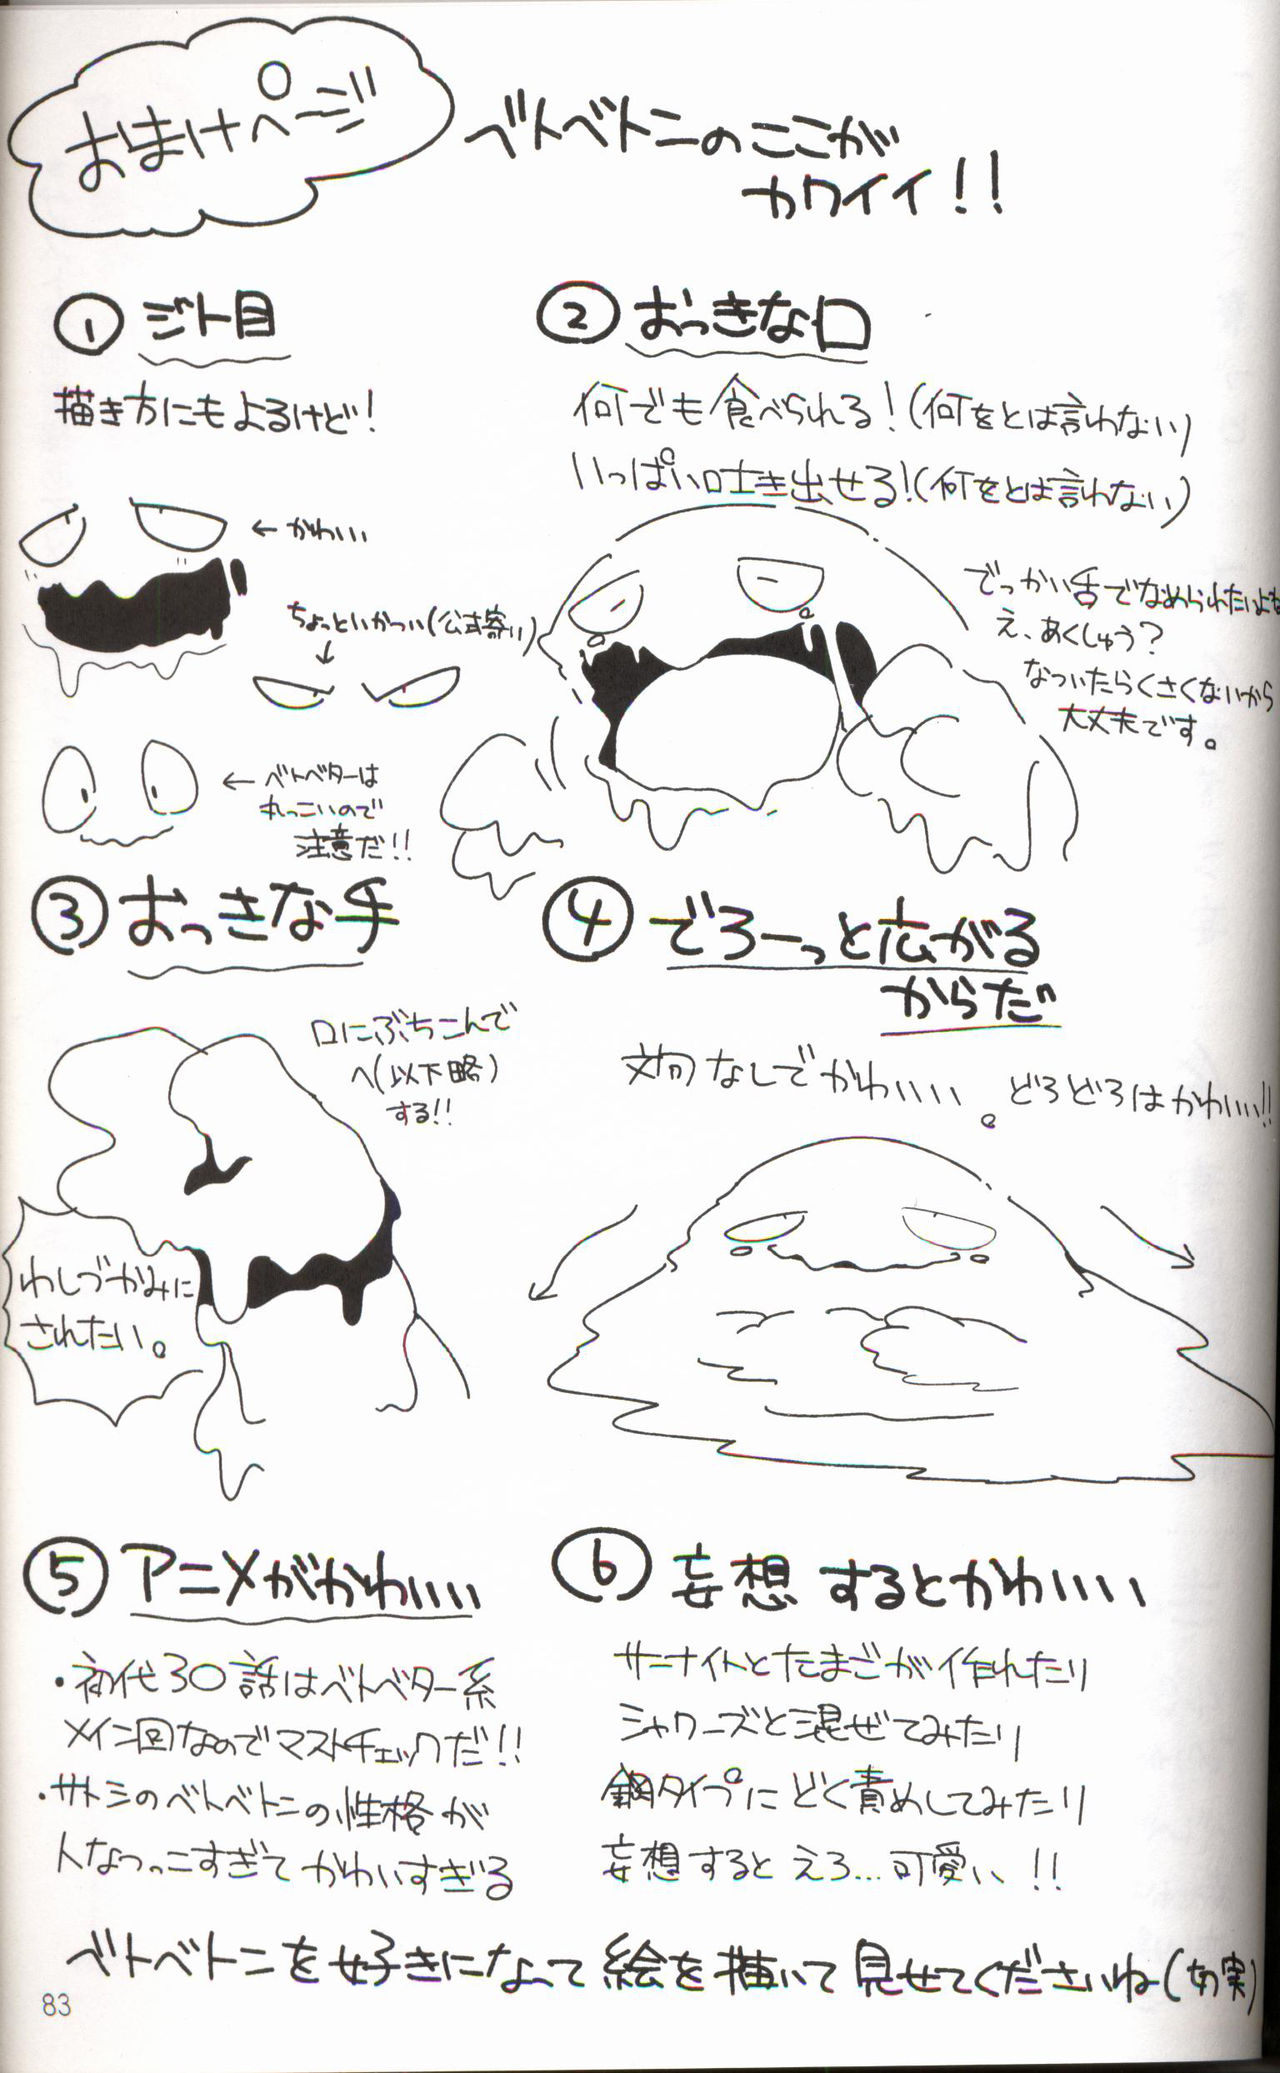 おまけページ
ベトベトンのここが
カワイイ!!
① ジト目
描き方にもよるけど!
←かわいい
ちょっといかつい(公式寄り)
↓
←ベトベターは
丸っこいので
注意だ!!
② おっきな口
何でも食べられる!(何をとは言わない)
いっぱい吐き出せる!(何をとは言わない)
でっかい舌でなめられたいよな
え、あくしゅう?
なついたらくさくないから
大丈夫です。
③ おっきな手
口にぶちこんで
へ(以下略)
する!!
わしづかみに
されたい。
④ でろーっと広がる
からだ
文句なしでかわいい。どろどろはかわいい!!
⑤ アニメがかわいい
・初代30話はベトベター系
メイン回なのでマストチェックだ!!
・サトシのベトベトンの性格が
人なつっこすぎてかわいすぎる
⑥ 妄想するとかわいい
サーナイトとたまごが作れたり
シャワーズと混ぜてみたり
鋼タイプにどく責めしてみたり
妄想するとえろ…可愛い!!
ベトベトンを好きになって絵を描いて見せてくださいね(切実)
83